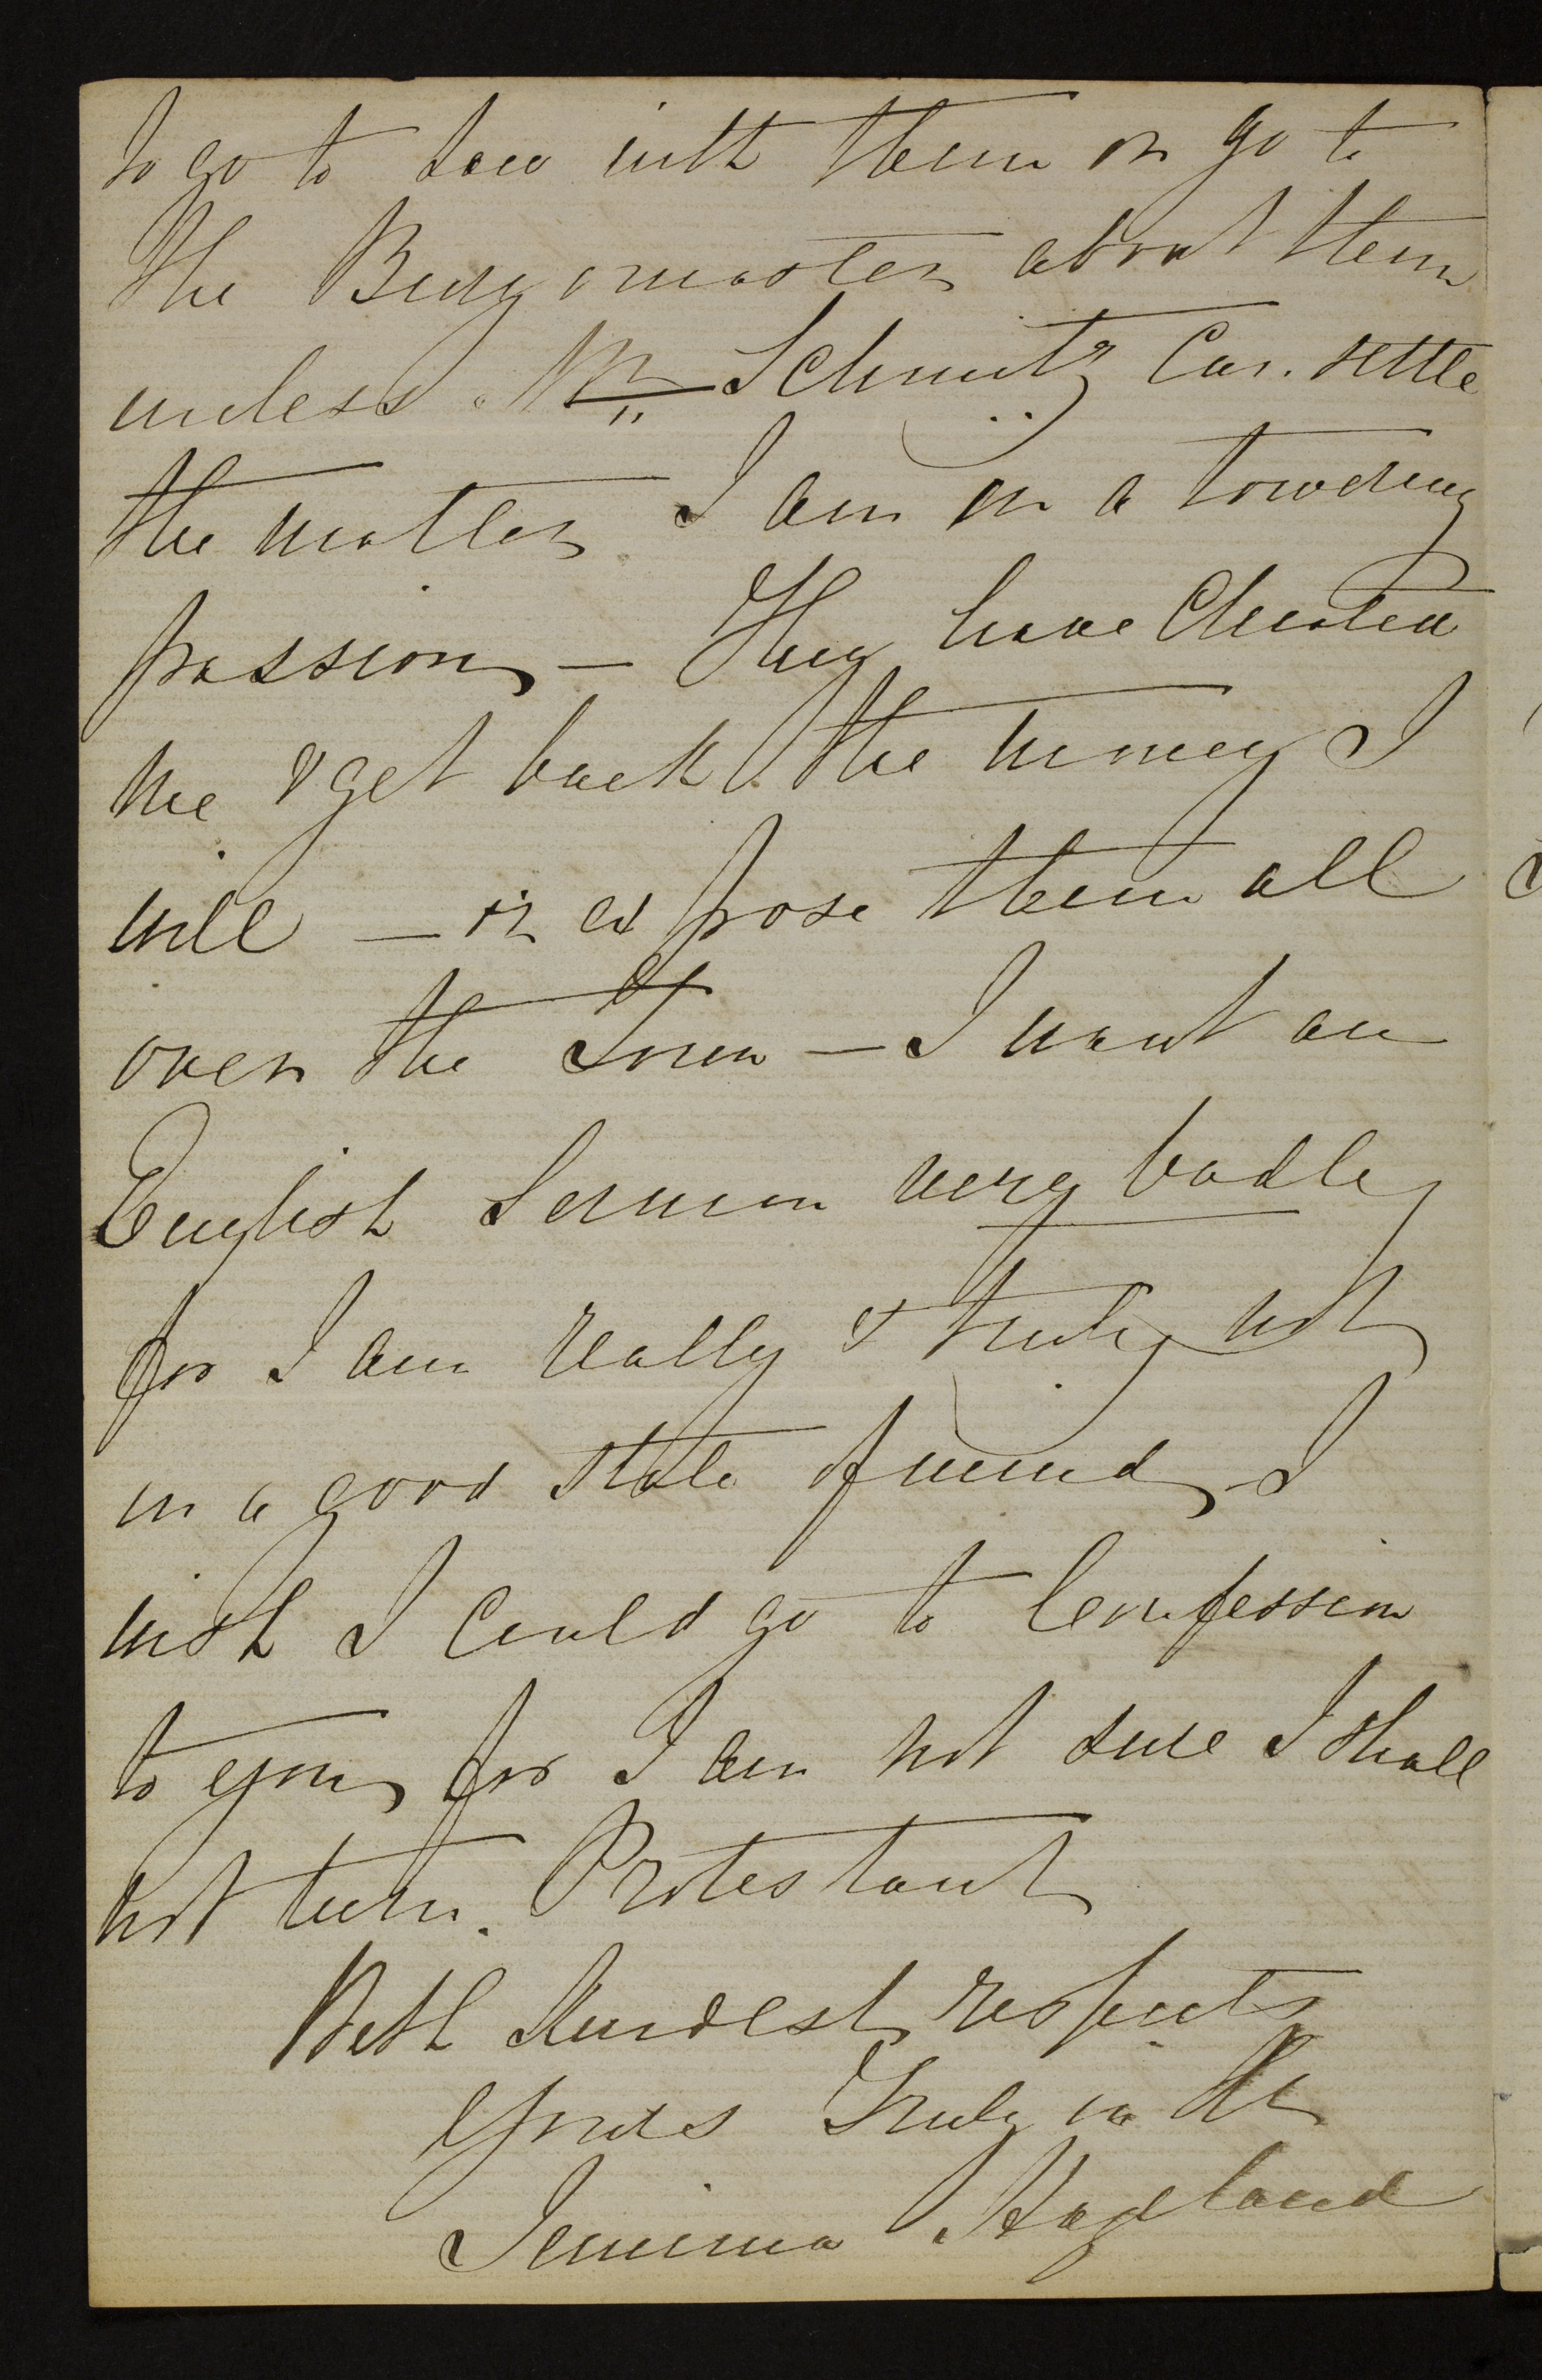 to go to Law with them or go to
the Burgomaster about them
unless Mr Schmitz Can. settle
the matter. I am in a towering
passion — They have Cheated
me & get back the money I
will — or expose them all
over the Town — I want an
English Sermon very badly
for I am really & truly not
in a good state of mind I
wish I could go to Confession
to you for I am not sure I shall
not turn. Protestant
With kindest respects
Yours Truly in
Jemima